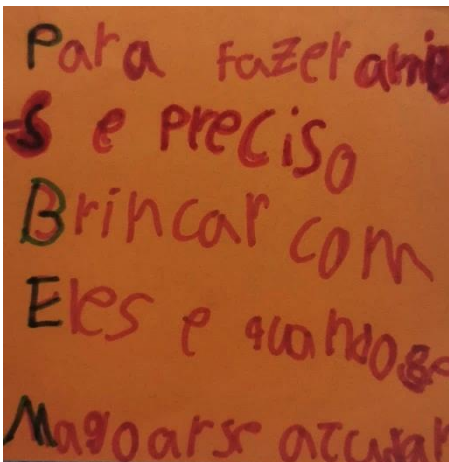 Para fazer amig
s e preciso
Brincar com
Eles e quando se
Magoarse